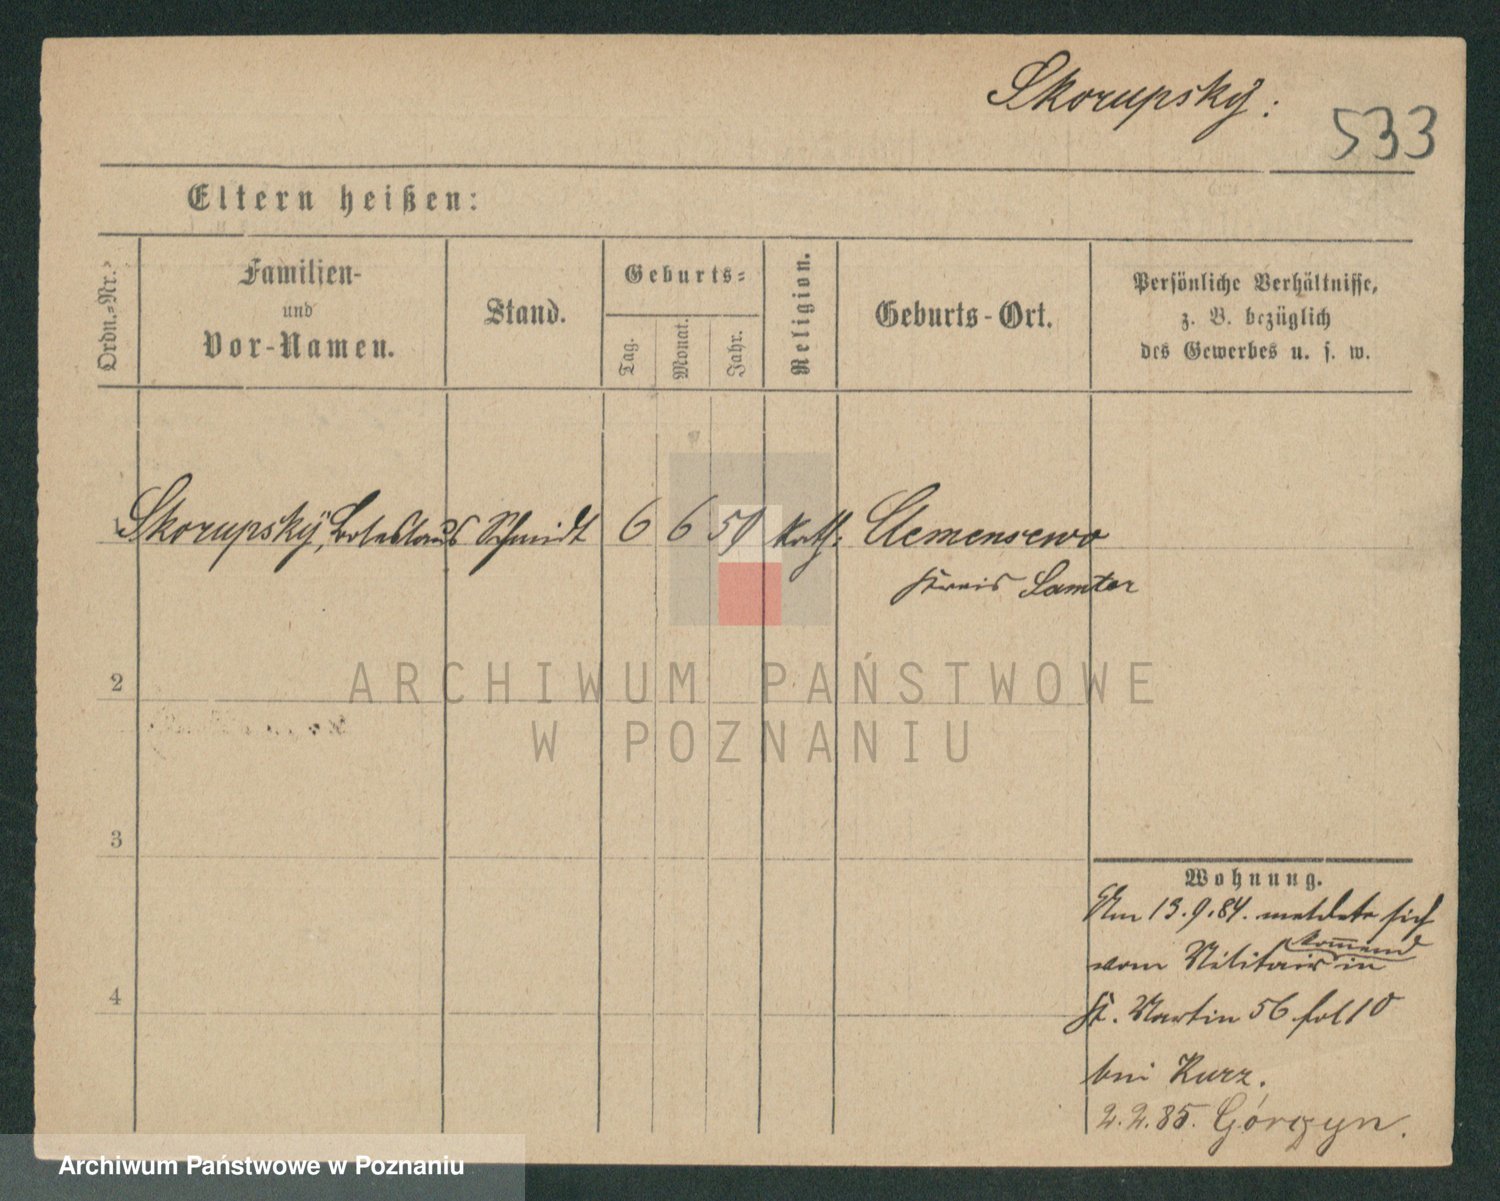 Skorupský:
533
Eltern heißen:
Ordn.-Nr.
Familien-
und
Vor-Namen.
Stand.
Geburts-
Tag.
Monat.
Jahr.
Religion.
Geburts-Ort.
Persönliche Verhältnisse,
z. B. bezüglich
des Gewerbes u. s. w.
1 Skorupský, Boleslaus Schmidt 6 6 59 kath: Clemensewo
Kreis Samter
2
3
4
Wohnung.
Am 13.9.84. meldete sich
vom Militair kommend in
St. Martin 56 fol 10
bei Kurz.
2.2.85. Górczyn.
ARCHIWUM PAŃSTWOWE
W POZNANIU
Archiwum Państwowe w Poznaniu